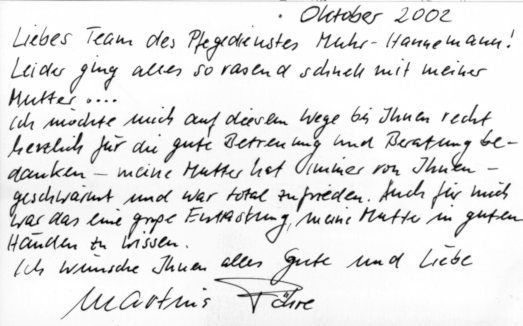 Oktober 2002
Liebes Team des Pflegedienstes Muhr-Hannemann!
Leider ging alles so rasend schnell mit meiner
Mutter ....
Ich möchte mich auf diesem Wege bei Ihnen recht
herzlich für die gute Betreuung und Beratung be-
danken – meine Mutter hat immer von Ihnen –
geschwärmt und war total zufrieden. Auch für mich
war das eine große Entlastung, meine Mutter in guten
Händen zu wissen.
Ich wünsche Ihnen alles Gute und Liebe